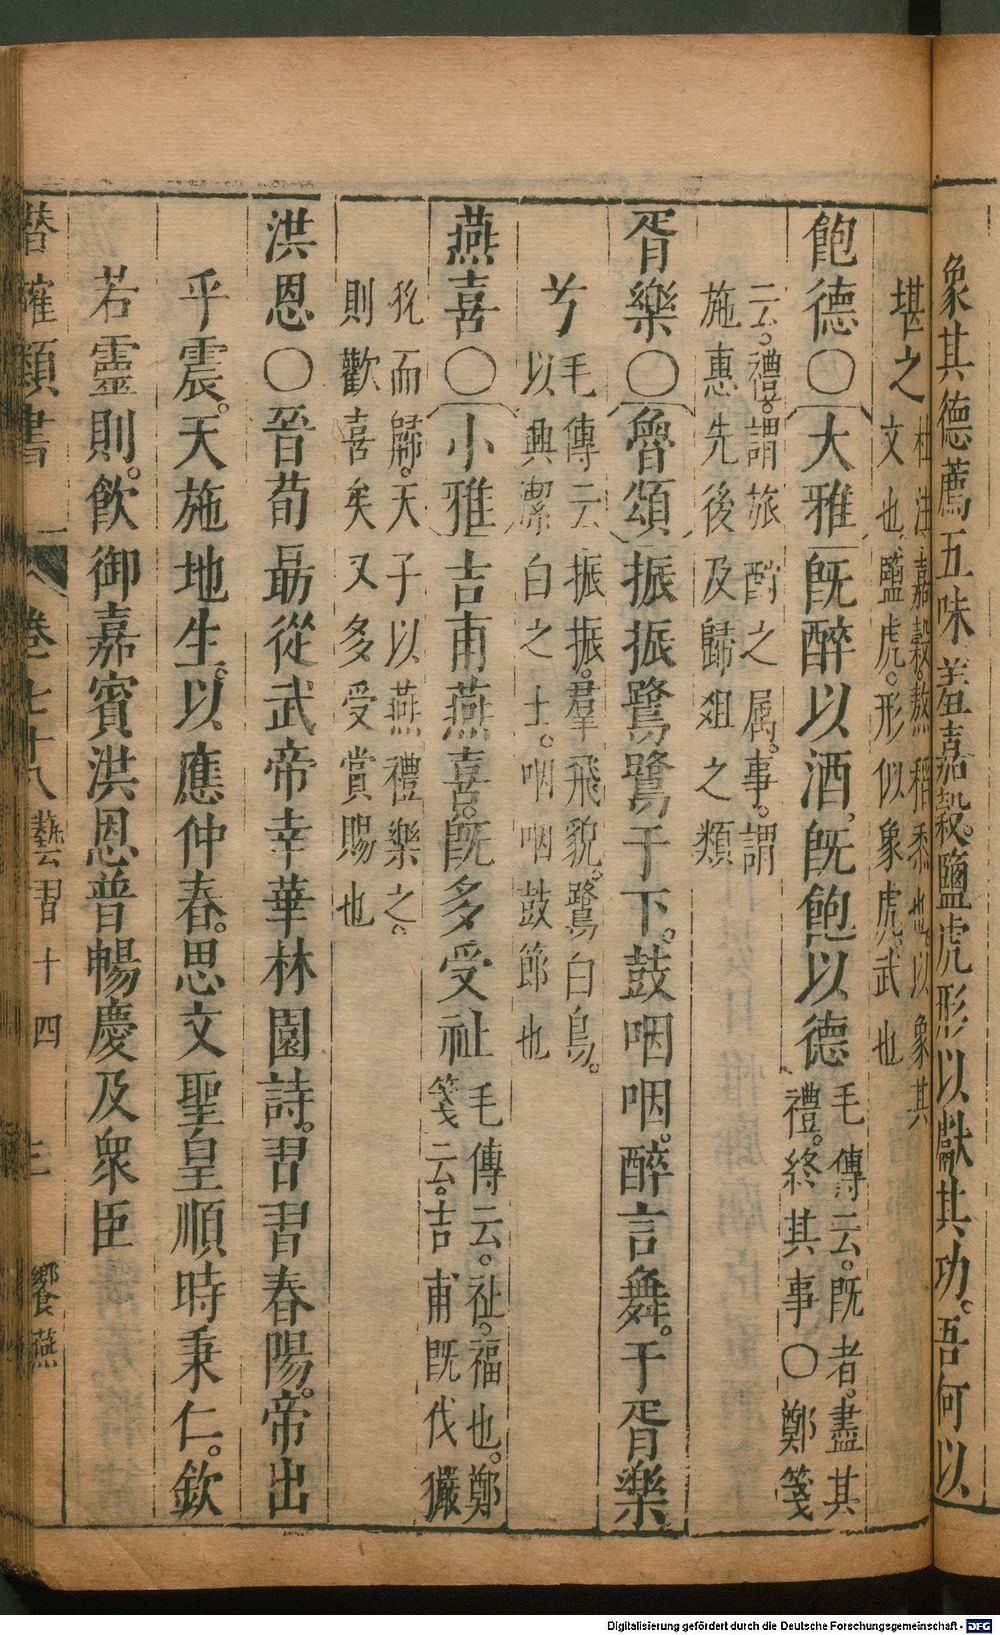 象其德薦五味羞嘉穀鹽虎形以獻其功吾何以
堪之杜注嘉穀熬稻黍也以象其
文也鹽虎形似象虎武也
飽德〇大雅既醉以酒既飽以德毛傳云既者盡其
禮終其事〇鄭箋
云禮謂旅酧之属事謂
施惠先後及歸俎之類
胥樂〇魯頌振振鷺鷺于下鼓咽咽醉言舞于胥樂
兮毛傳云振振羣飛貌鷺白鳥
以興潔白之士咽咽鼓節也
燕喜〇小雅吉甫燕喜旣多受祉毛傳云祉福也鄭
箋云吉甫旣伐玁
狁而歸天子以燕禮樂之
則歡喜矣又多受賞賜也
洪恩〇晉荀朂從武帝幸華林園詩習習春陽帝出
乎震天施地生以應仲春思文聖皇順時秉仁欽
若靈則飲御嘉賓洪恩普暢慶及衆臣
潛確類書 卷七十八 藝習十四 三 饗燕
Digitalisierung gefördert durch die Deutsche Forschungsgemeinschaft - DFG